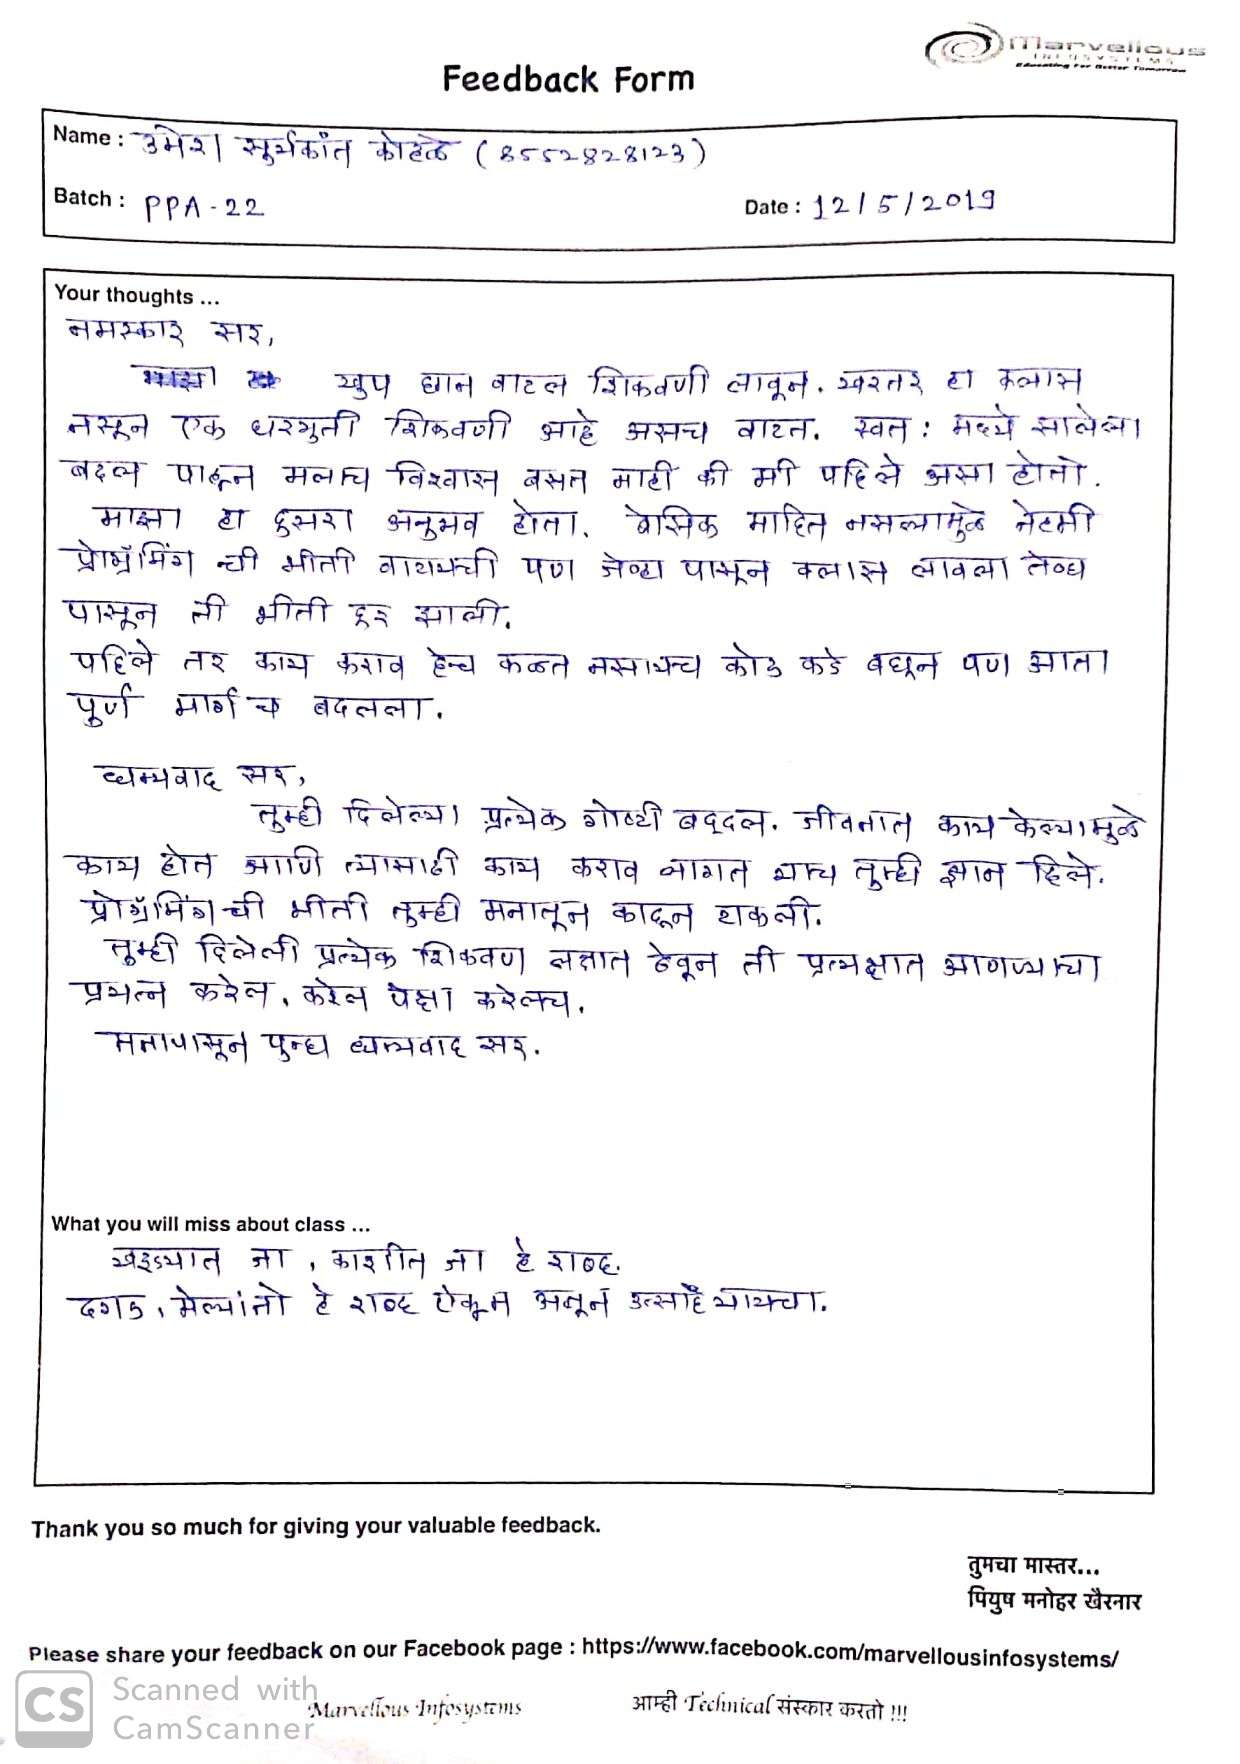 Marvellous
INFOSYSTEMS
Educating For Better Tomorrow
Feedback Form
Name : उमेश सुर्यकांत कोहळे (8552828123)
Batch : PPA - 22
Date : 12/5/2019
Your thoughts ...
नमस्कार सर,
खुप छान वाटल शिकवणी लावून. खरतर हा क्लास
नसून एक घरगुती शिकवणी आहे असच वाटत. स्वत: मध्ये झालेला
बदल पाहून मलाच विश्वास बसत नाही की मी पहिले असा होतो.
माझा हा दुसरा अनुभव होता. बेसिक माहित नसलामुळे नेहमी
प्रोग्रॅमिंग ची भीती वाटायची पण जेव्हा पासून क्लास लावला तेव्हा
पासून ती भीती दूर झाली.
पहिले तर काय कराव हेच कळत नसायच कोड कडे बघून पण आता
पुर्ण मार्ग च बदलला.
धन्यवाद सर,
तुम्ही दिलेल्या प्रत्येक गोष्टी बद्दल. जीवनात काय केल्यामुळे
काय होत आणि त्यासाठी काय कराव लागत याच तुम्ही ज्ञान दिले.
प्रोग्रॅमिंग ची भीती तुम्ही मनातून काढून टाकली.
तुम्ही दिलेली प्रत्येक शिकवण लक्षात ठेवून ती प्रत्यक्षात आणण्याचा
प्रयत्न करेल. करेल पेक्षा करेलच.
मनापासून पुन्हा धन्यवाद सर.
What you will miss about class ...
खड्यात जा, काशीत जा हे शब्द.
दगड, मेल्यांनो हे शब्द ऐकून अजून उत्साह यायचा.
Thank you so much for giving your valuable feedback.
तुमचा मास्तर...
पियुष मनोहर खैरनार
Please share your feedback on our Facebook page : https://www.facebook.com/marvellousinfosystems/
Marvellous Infosystems
आम्ही Technical संस्कार करतो !!!
CS Scanned with
CamScanner